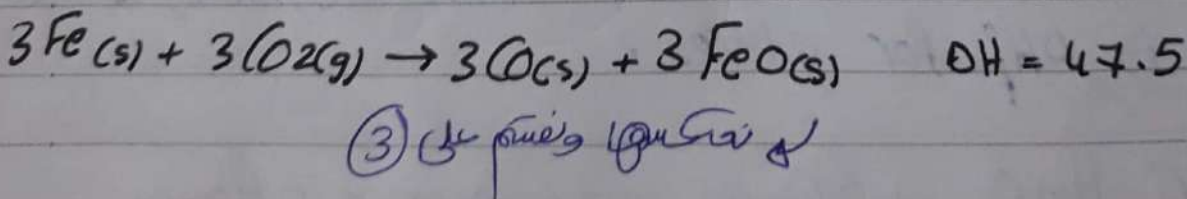 3Fe(s) + 3CO2(g) → 3CO(s) + 3FeO(s) ΔH = 47.5
نعكسها ونقسم على ③